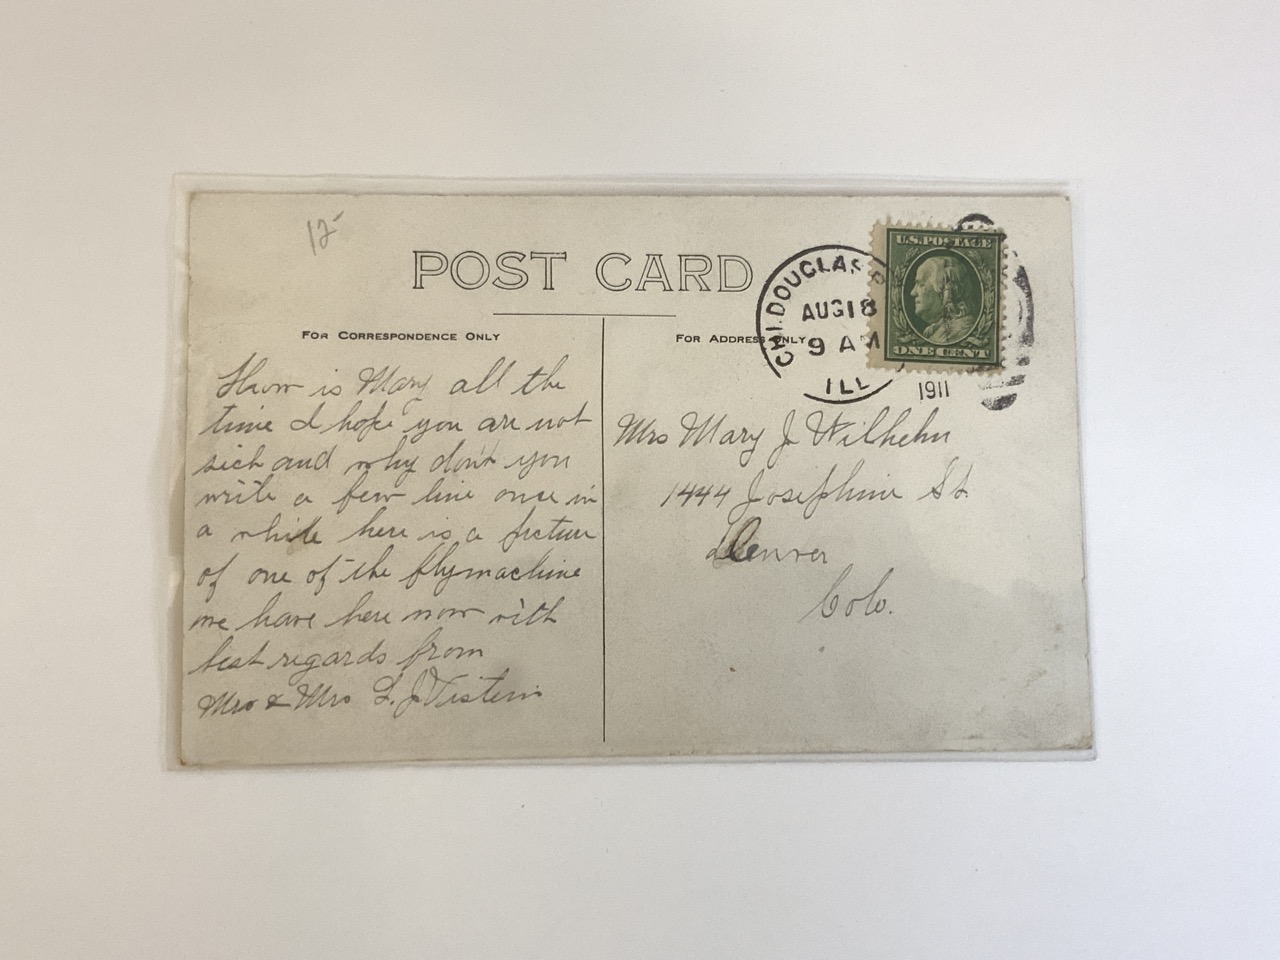 12-
POST CARD
FOR CORRESPONDENCE ONLY
FOR ADDRESS ONLY
CHI. DOUGLAS
AUG 18
9 AM
ILL
1911
U.S. POSTAGE
ONE CENT
How is Mary all the
time I hope you are not
sick and why don't you
write a few line once in
a while here is a picture
of one of the flymachine
we have here now with
best regards from
Mr & Mrs L. J.
Mrs Mary J Wilhelm
1444 Josephine St
Denver
Colo.